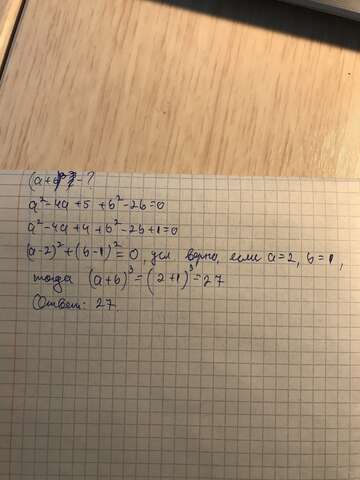 (a+b)³=?
a²-4a+5+b²-2b=0
a²-4a+4+b²-2b+1=0
(a-2)²+(b-1)²=0, усл верно, если a=2, b=1,
тогда (a+b)³=(2+1)³=27
Ответ: 27.